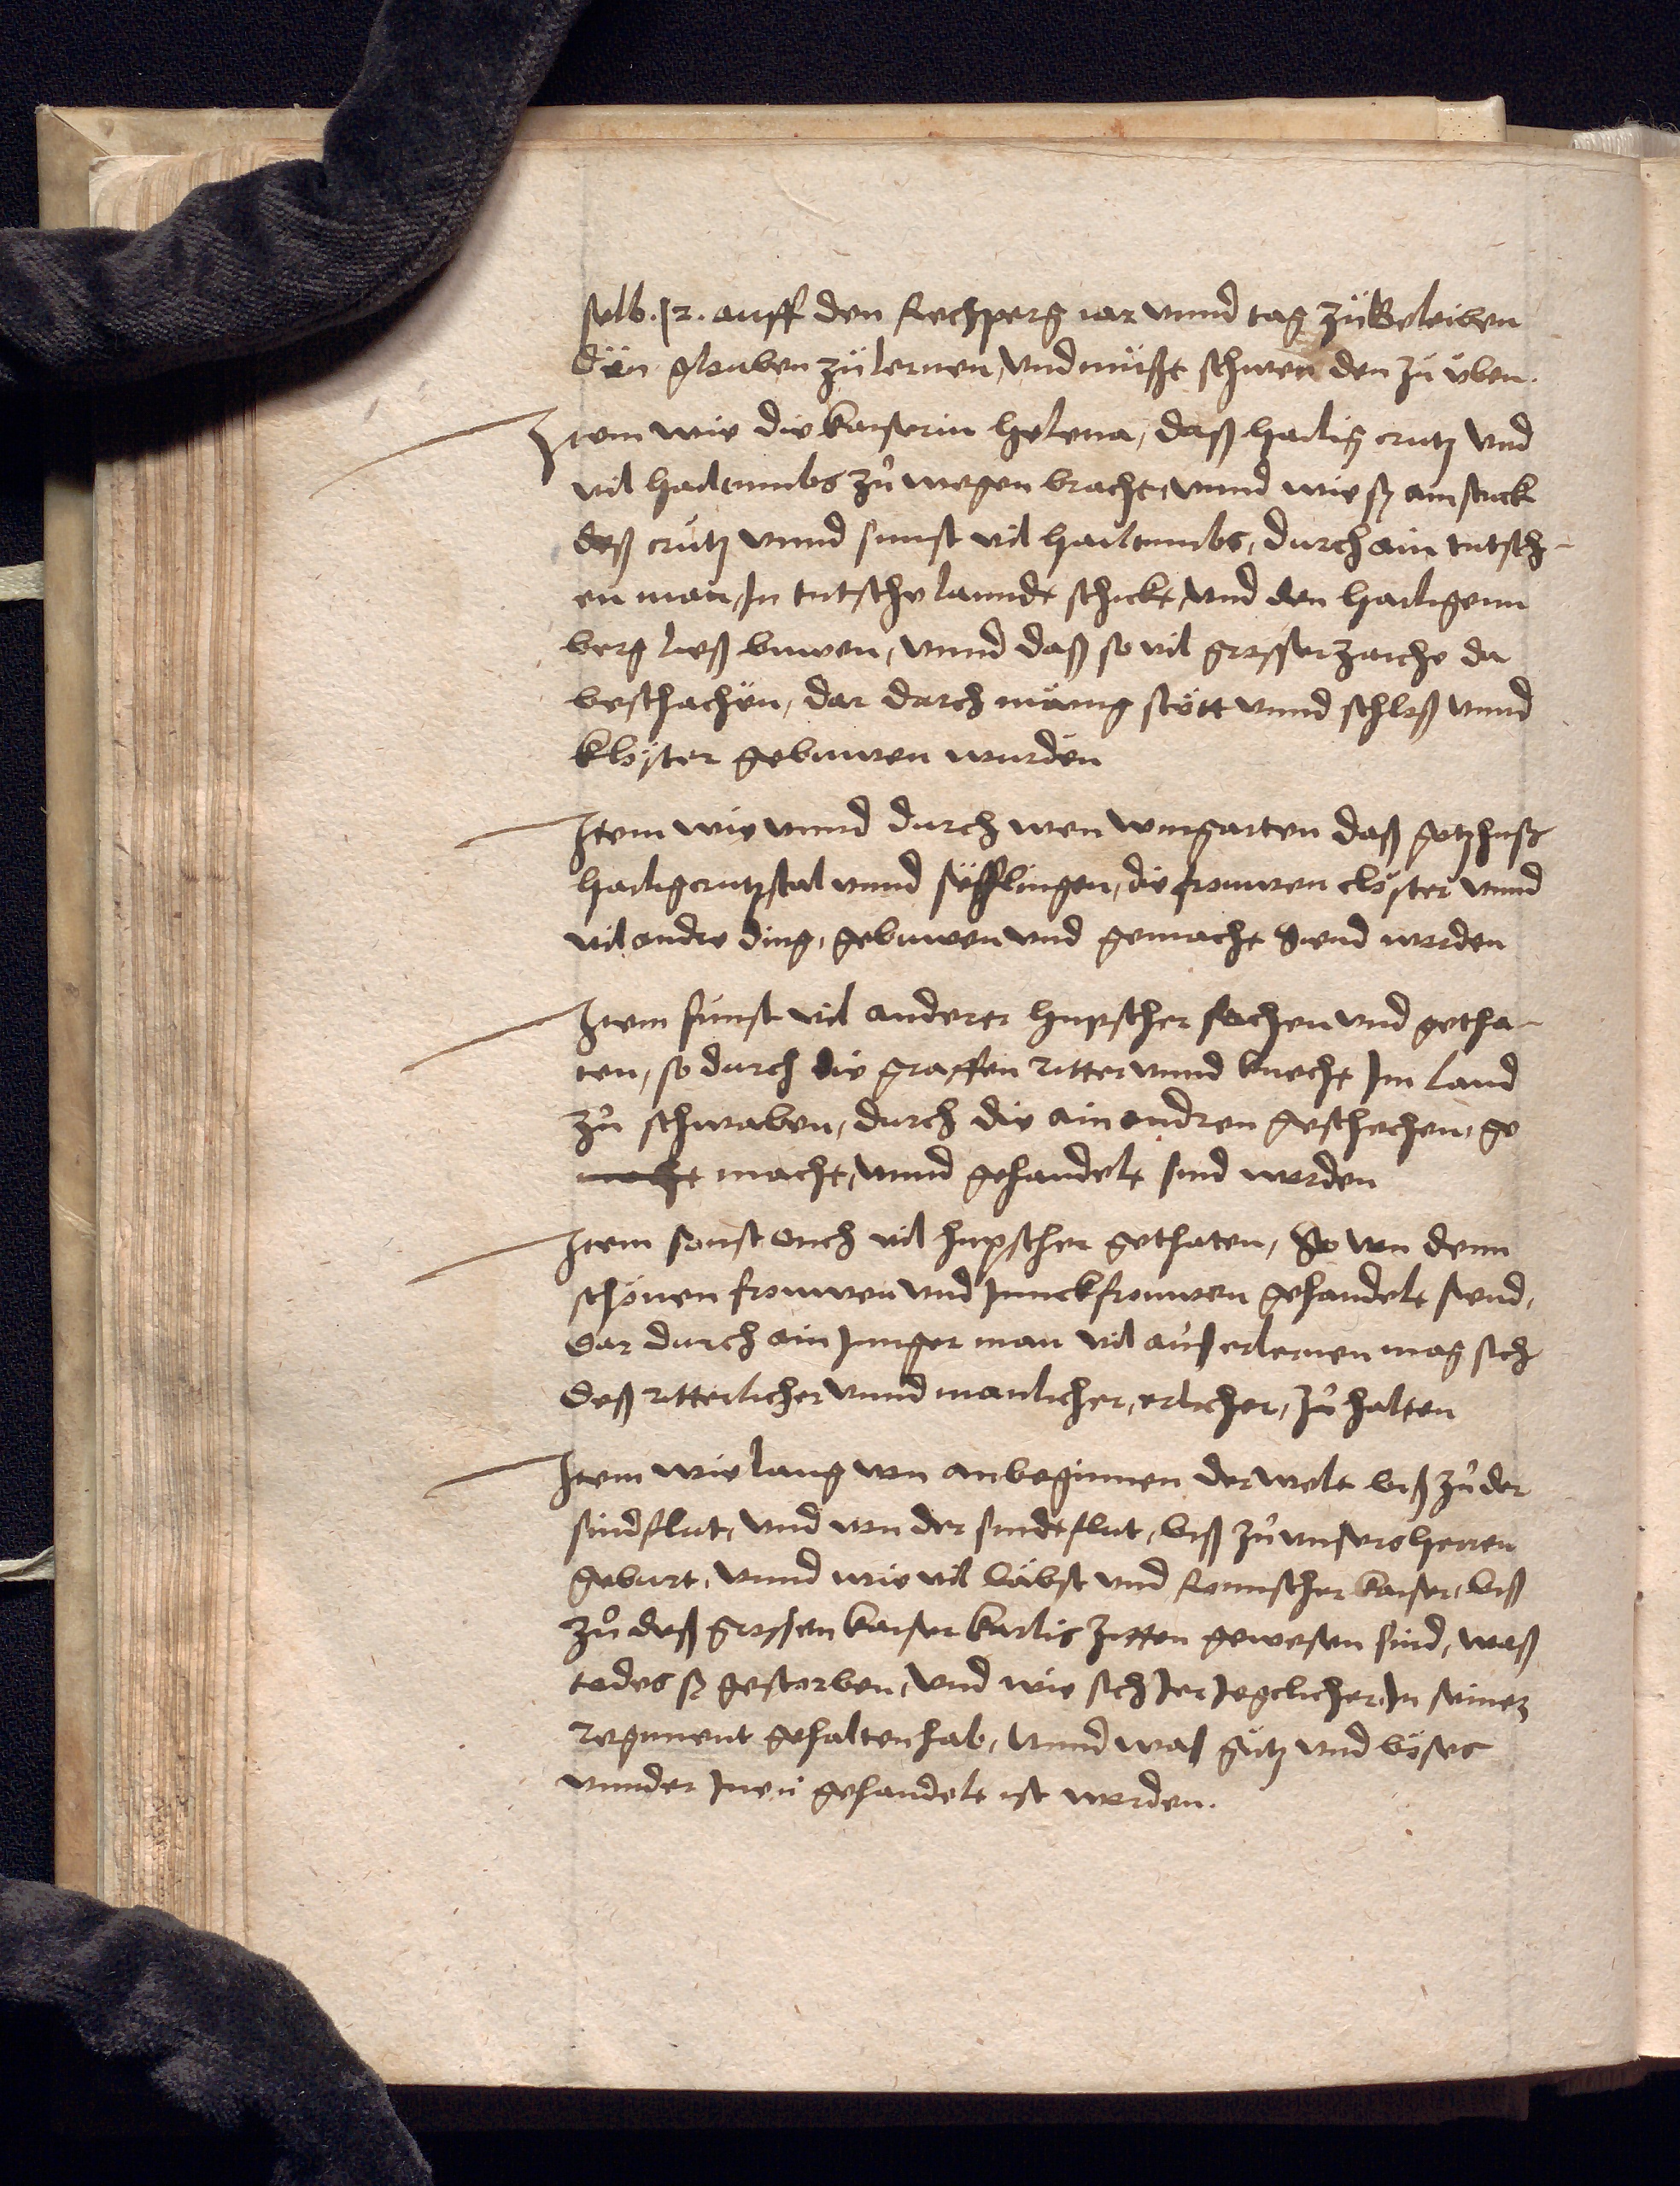 selb .12. auff den Rechperg iar vnnd tag zů Beleiben
den glauben zů lernen, vnd můßt schweden zů üben.
Item wie die kaiserin Helena, daß hailig crutz vnd
vil hailtumbs zů wegen bracht, vnnd wie sy ain stuck
deß crütz vnnd sunst vil hailtumbs, durch ain tutsch-
en man, In tutsche lannde schickt, vnd den hailigenn
berg ließ buwen, vnnd daß so vil grosser zaiche da
beschachen, dar durch mäng stött vnnd schloß vnnd
klöster gebuwen wurden
Item wie vnnd durch wen wingarten daß gotzhuß
hailigcrutzstal vnnd söfflingen, die frouwen clöster vnnd
vil andre ding, gebuwen vnd gemacht Send worden
Item sunst vil anderer hupscher sachen vnd getha-
ten, so durch die graffen ritter vnnd knecht Im land
zů schwaben, durch die ain andren geschechen, ge
macht macht, vnnd gehandelt sind worden
Item sonst ouch vil hupscher gethaten, So von denn
schönen frouwen vnd Junckfrouwen gehandelt send,
dar durch ain Junger man vil auß erlernen mag sich
deß ritterlicher vnnd manlicher, erlicher, zů halten
Item wie lang von anbeginnen der welt biß zů der
sindflut, vnd von der sindtflut, biß zů vnsers herren
geburt, vnnd wie vil bäbst vnd Romscher kaiser, biß
zů deß grossen kaiser karlis zitten gewesen sind, waß
todes sy gestorben, vnd wie sich Ier Ieglicher In seinez
regiment gehalten hab, vnnd was gůtz vnd böses
vnnder Inen gehandelt ist worden.